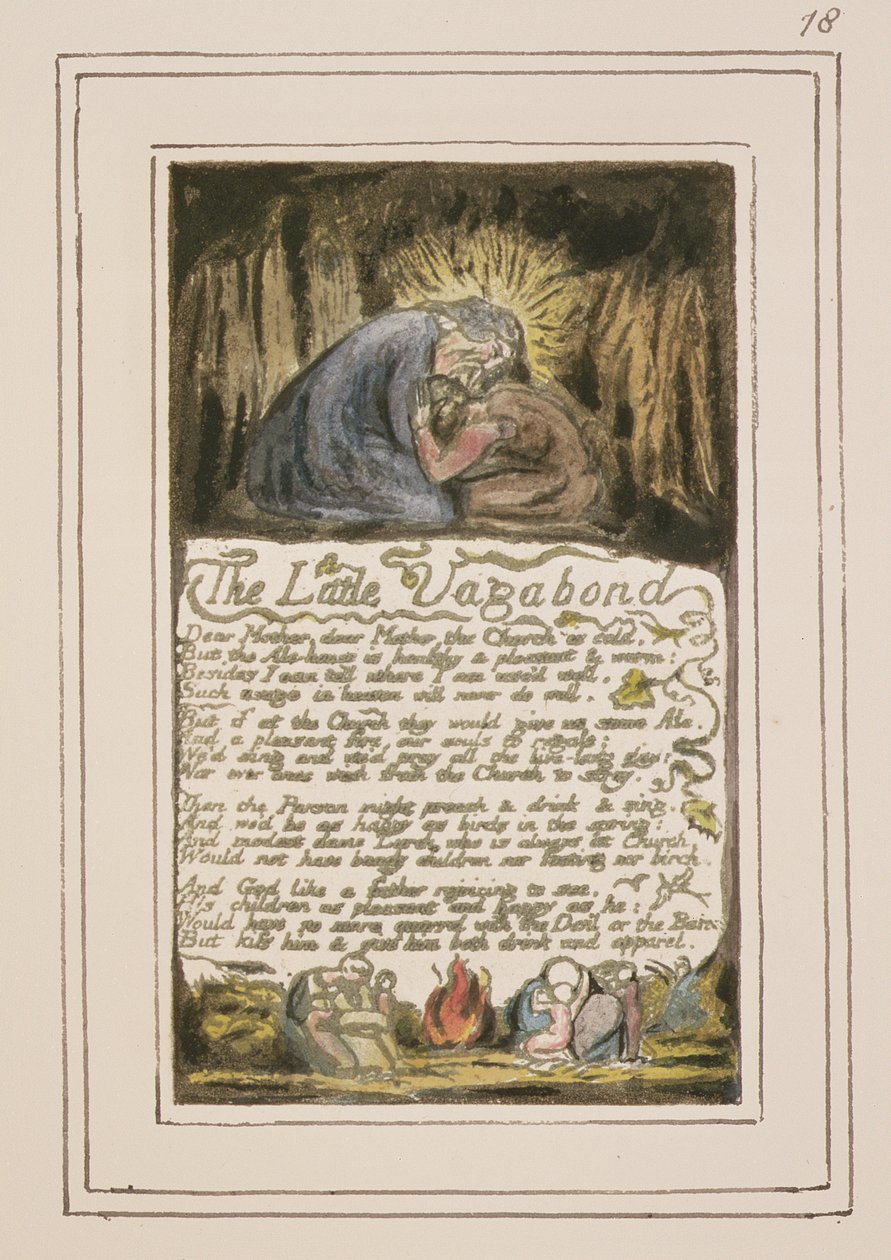 18
The Little Vagabond
Dear Mother, dear Mother, the Church is cold,
But the Ale-house is healthy & pleasant & warm:
Besides I can tell where I am use'd well,
Such usage in heaven will never do well.
But if at the Church they would give us some Ale.
And a pleasant fire, our souls to regale:
We'd sing and we'd pray all the live-long day:
Nor ever once wish from the Church to stray.
Then the Parson might preach & drink & sing.
And we'd be as happy as birds in the spring:
And modest dame Lurch, who is always at Church,
Would not have bandy children nor fasting nor birch.
And God like a father rejoicing to see,
His children as pleasant and happy as he:
Would have no more quarrel with the Devil or the Barrel
But kiss him & give him both drink and apparel.